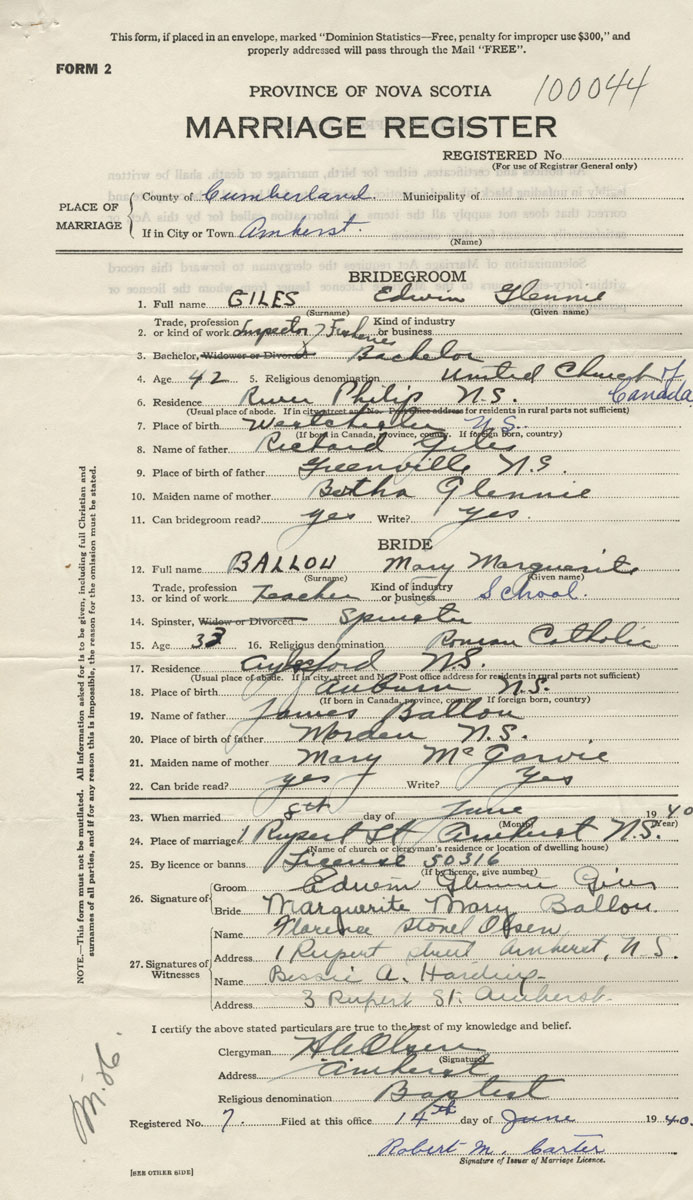 This form, if placed in an envelope, marked "Dominion Statistics—Free, penalty for improper use $300," and
properly addressed will pass through the Mail "FREE".
FORM 2
100044
PROVINCE OF NOVA SCOTIA
MARRIAGE REGISTER
REGISTERED No.
(For use of Registrar General only)
PLACE OF MARRIAGE
County of Cumberland. Municipality of
If in City or Town Amherst.
(Name)
BRIDEGROOM
1. Full name GILES Edwin Glennie
(Surname) (Given name)
2. Trade, profession or kind of work Inspector of Fisheries Kind of industry or business.
3. Bachelor, Widower or Divorced Bachelor
4. Age 42 5. Religious denomination United Church of Canada
6. Residence River Philip N.S.
(Usual place of abode. If in city street and No. Post office address for residents in rural parts not sufficient)
7. Place of birth Westchester N.S.
(If born in Canada, province, county. If foreign born, country)
8. Name of father Richard Giles
9. Place of birth of father Greenville N.S.
10. Maiden name of mother Bertha Glennie
11. Can bridegroom read? yes Write? Yes.
BRIDE
12. Full name BALLOU Mary Marguerite
(Surname) (Given name)
13. Trade, profession or kind of work Teacher Kind of industry or business School.
14. Spinster, Widow or Divorced Spinster
15. Age 33 16. Religious denomination Roman Catholic
17. Residence Aylesford N.S.
(Usual place of abode. If in city, street and No. Post office address for residents in rural parts not sufficient)
18. Place of birth Auburn N.S.
(If born in Canada, province, county. If foreign born, country)
19. Name of father James Ballou
20. Place of birth of father Morden N.S.
21. Maiden name of mother Mary McGarvie
22. Can bride read? yes Write? Yes
23. When married 8th day of June 1940
(Month) (Year)
24. Place of marriage 1 Rupert St Amherst N.S.
(Name of church or clergyman's residence or location of dwelling house)
25. By licence or banns License 50316
(If by licence, give number)
26. Signature of
Groom Edwin Glennie Giles
Bride Marguerite Mary Ballou.
27. Signatures of Witnesses
Name Florence Olsen
Address 1 Rupert street Amherst, N.S.
Name Bessie A.
Address 3 Rupert St. Amherst.
I certify the above stated particulars are true to the best of my knowledge and belief.
Clergyman Olsen
(Signature)
Address Amherst
Religious denomination Baptist
Registered No. 7. Filed at this office 14th day of June 1940.
Robert M. Carter
Signature of Issuer of Marriage Licence.
[SEE OTHER SIDE]
NOTE.—This form must not be mutilated. All information asked for is to be given, including full Christian and
surnames of all parties, and if for any reason this is impossible, the reason for the omission must be stated.